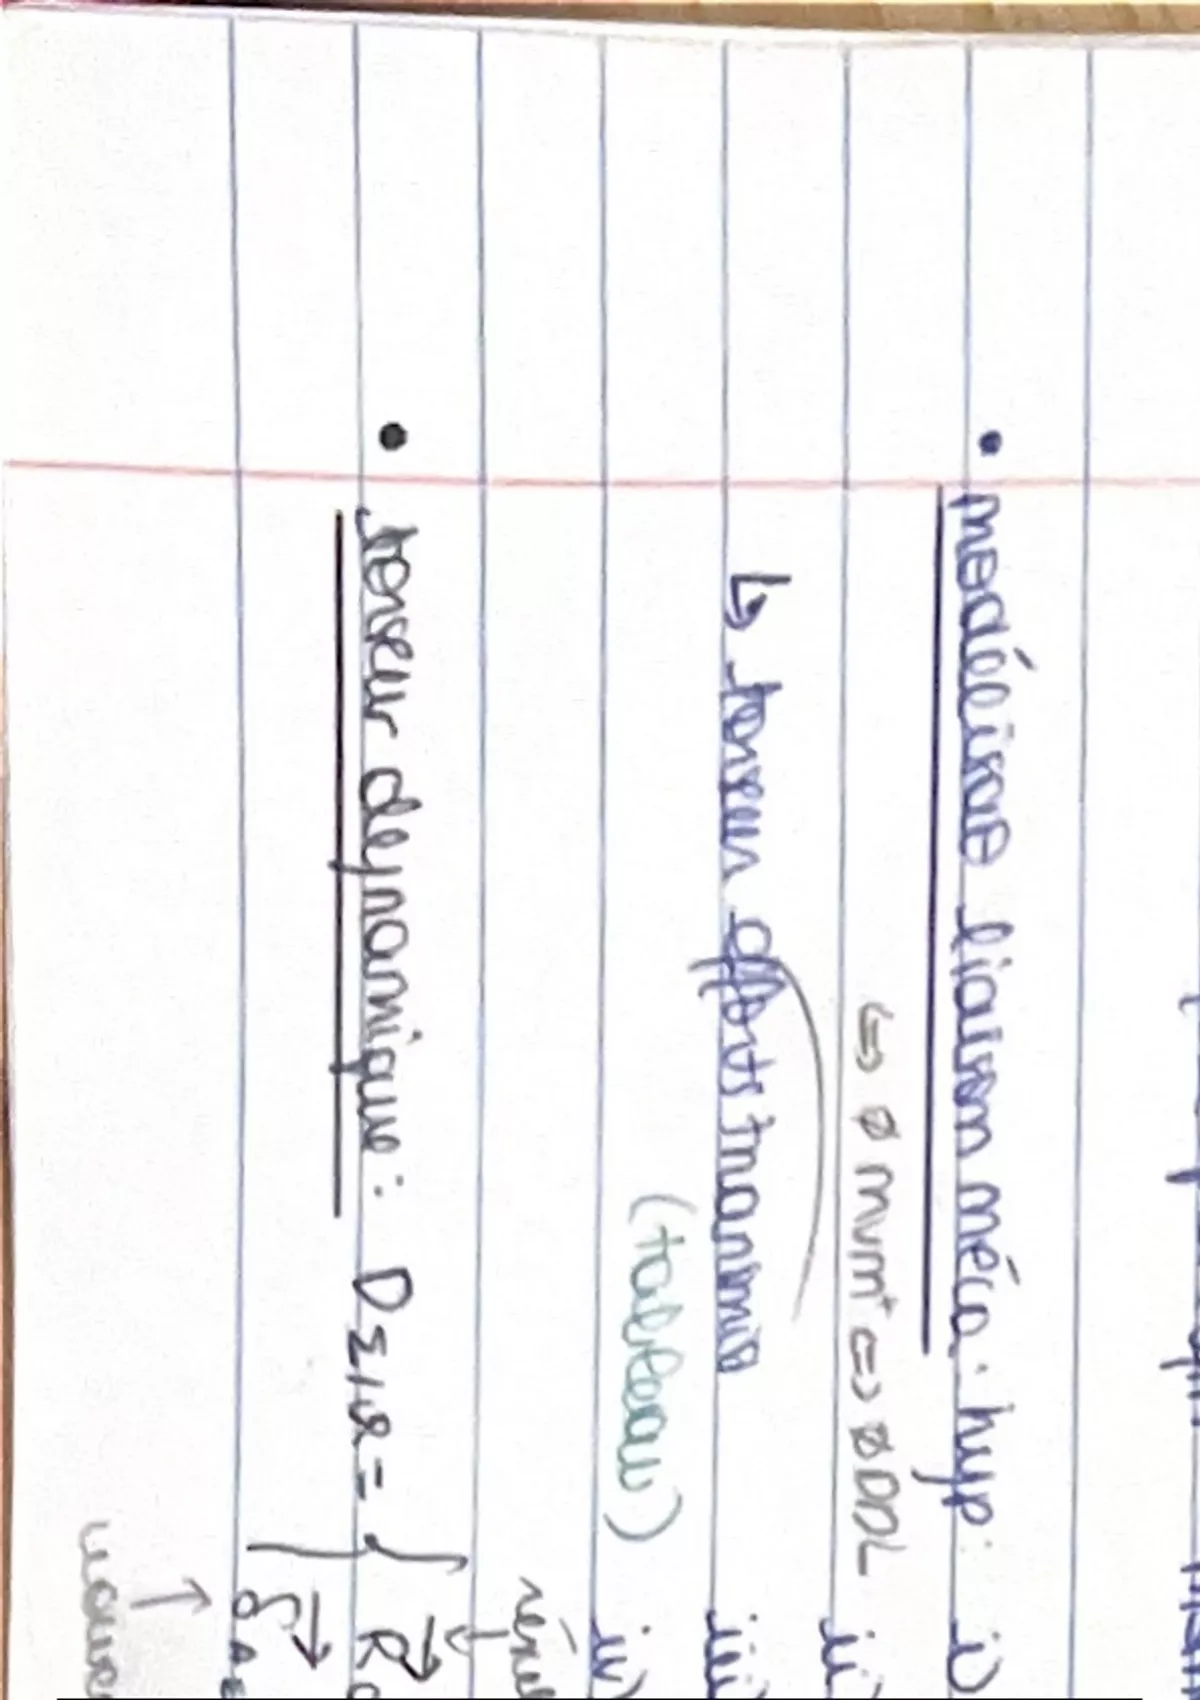 • modélisae liaison méca : hyp : i)
↳ ∅ mvmt ⇔ ∅ DDL ii)
↳ torseur efforts transmis iii)
(tableau) iv)
• torseur dynamique : D Σ/R = { R
δ A